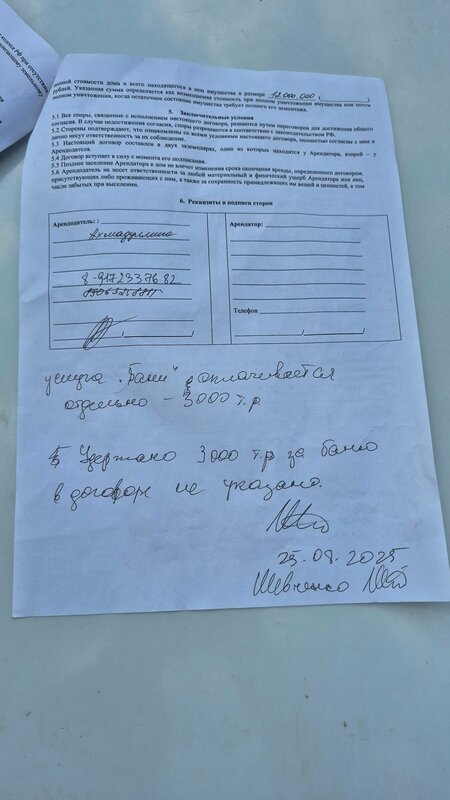 полной стоимости дома и всего находящегося в нем имущества в размере 12 000 000 (                    )
рублей. Указанная сумма определяется как возмещаемая стоимость при полном уничтожении имущества или почти
полном уничтожении, когда остаточное состояние имущества требует полного его демонтажа.
5. Заключительные условия
5.1 Все споры, связанные с исполнением настоящего договора, решаются путем переговоров для достижения общего
согласия. В случае недостижения согласия, споры разрешаются в соответствии с законодательством РФ.
5.2 Стороны подтверждают, что ознакомлены со всеми условиями настоящего договора, полностью согласны с ним и
лично несут ответственность за их соблюдение.
5.3 Настоящий договор составлен в двух экземплярах, один из которых находится у Арендатора, второй – у
Арендодателя.
5.4 Договор вступает в силу с момента его подписания.
5.5 Позднее заселение Арендатора в дом не влечет изменения срока окончания аренды, определенного договором.
5.6 Арендодатель не несет ответственности за любой материальный и физический ущерб Арендатора или лиц,
присутствующих либо проживающих с ним, а также за сохранность принадлежащих им вещей и ценностей, в том
числе забытых при выселении.
6. Реквизиты и подписи сторон
Арендодатель: :
Ахмадуллина
8-917 2337682
89063258811
Арендатор:
Телефон
услуга "Бани" оплачивается
отдельно - 3000 т.р
Удержано 3000 т.р за баню
в договоре не указано.
25.08.2025
Шевченко